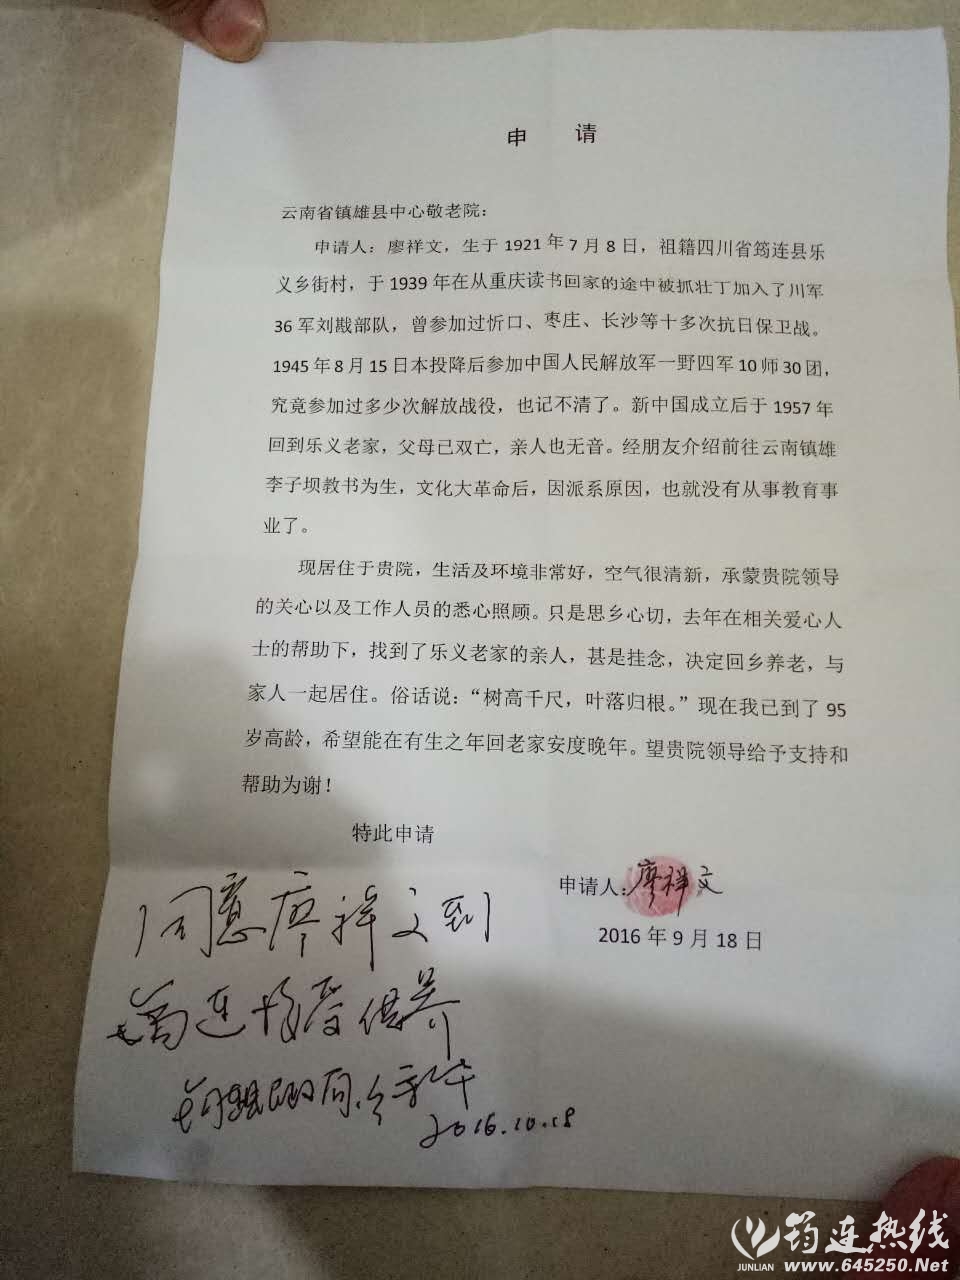 申 请
云南省镇雄县中心敬老院：
申请人：廖祥文，生于 1921 年 7 月 8 日，祖籍四川省筠连县乐
义乡街村，于 1939 年在从重庆读书回家的途中被抓壮丁加入了川军
36 军刘戡部队，曾参加过忻口、枣庄、长沙等十多次抗日保卫战。
1945 年 8 月 15 日本投降后参加中国人民解放军一野四军 10 师 30 团，
究竟参加过多少次解放战役，也记不清了。新中国成立后于 1957 年
回到乐义老家，父母已双亡，亲人也无音。经朋友介绍前往云南镇雄
李子坝教书为生，文化大革命后，因派系原因，也就没有从事教育事
业了。
现居住于贵院，生活及环境非常好，空气很清新，承蒙贵院领导
的关心以及工作人员的悉心照顾。只是思乡心切，去年在相关爱心人
士的帮助下，找到了乐义老家的亲人，甚是挂念，决定回乡养老，与
家人一起居住。俗话说：“树高千尺，叶落归根。”现在我已到了 95
岁高龄，希望能在有生之年回老家安度晚年。望贵院领导给予支持和
帮助为谢！
特此申请
申请人：廖祥文
2016 年 9 月 18 日
同意廖祥文到
筠连接受供养
2016.10.18
筠连热线
JUNLIAN www.645250.Net